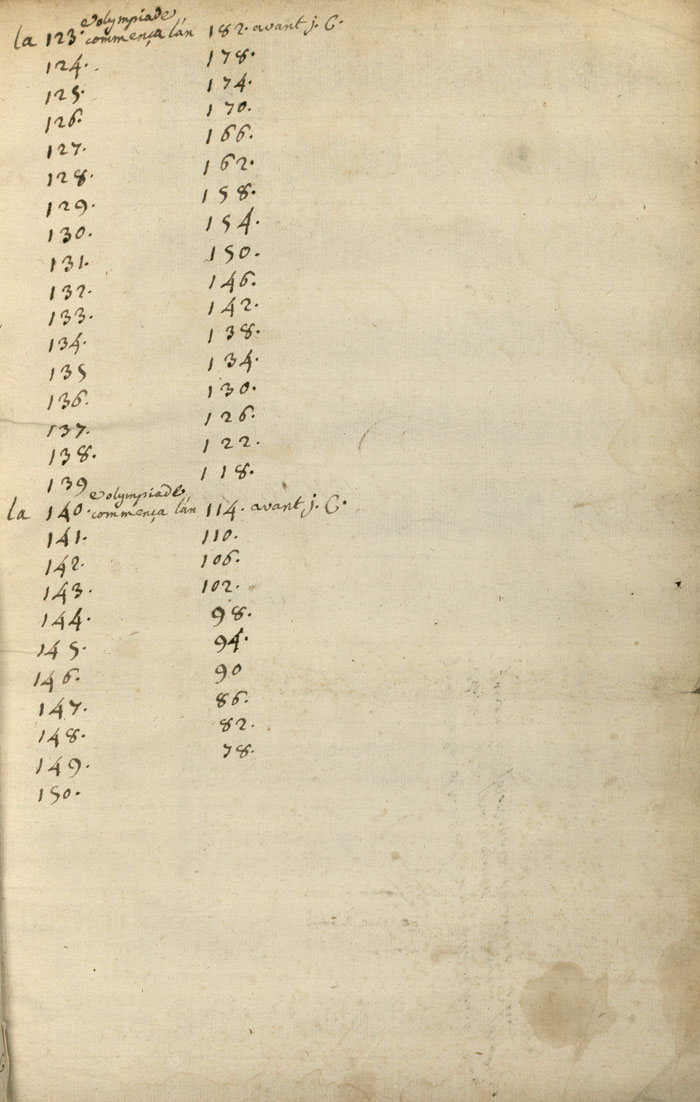 la 123.e olympiade commença l'an 182. avant j. C.
124. 178.
125. 174.
126. 170.
127. 166.
128. 162.
129. 158.
130. 154.
131. 150.
132. 146.
133. 142.
134. 138.
135 134.
136. 130.
137. 126.
138. 122.
139 118.
la 140.e olympiade commença l'an 114. avant j. C.
141. 110.
142. 106.
143. 102.
144. 98.
145. 94.
146. 90
147. 86.
148. 82.
149. 78.
150.